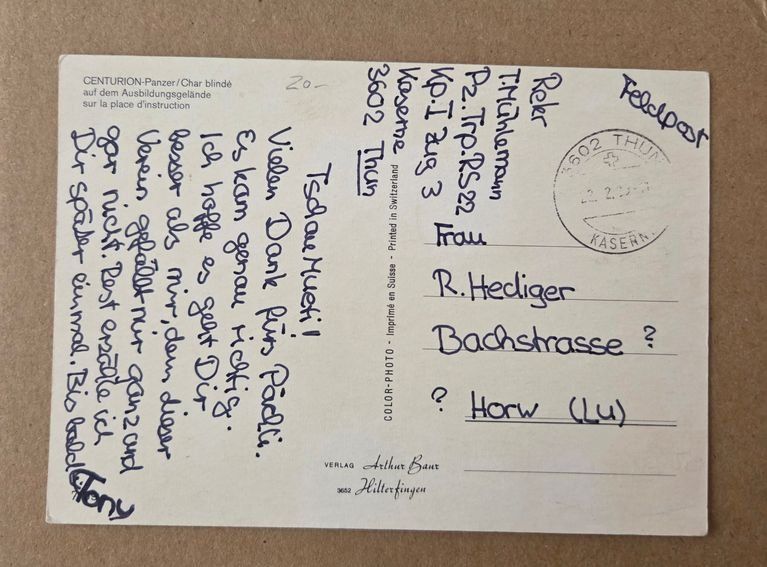 CENTURION-Panzer/Char blindé
auf dem Ausbildungsgelände
sur la place d'instruction
20.-
Tschau Mueti!
Vielen Dank fürs Päckli.
Es kam genau richtig.
Ich hoffe es geht Dir
besser als mir, denn dieser
Verein gefällt mir ganz und
gar nicht. Rest erzäle ich
Dir später einmal. Bis bald
Tony
Rekr
T. Mühlemann
Pz. Trp. RS 22
Kp. I Zug 3
Kaserne
3602 Thun
Feldpost
3602 THUN
KASERN
Frau
R. Hediger
Bachstrasse ?
? Horw (Lu)
COLOR-PHOTO - Imprimé en Suisse - Printed in Switzerland
VERLAG Arthur Baur
3652 Hilterfingen